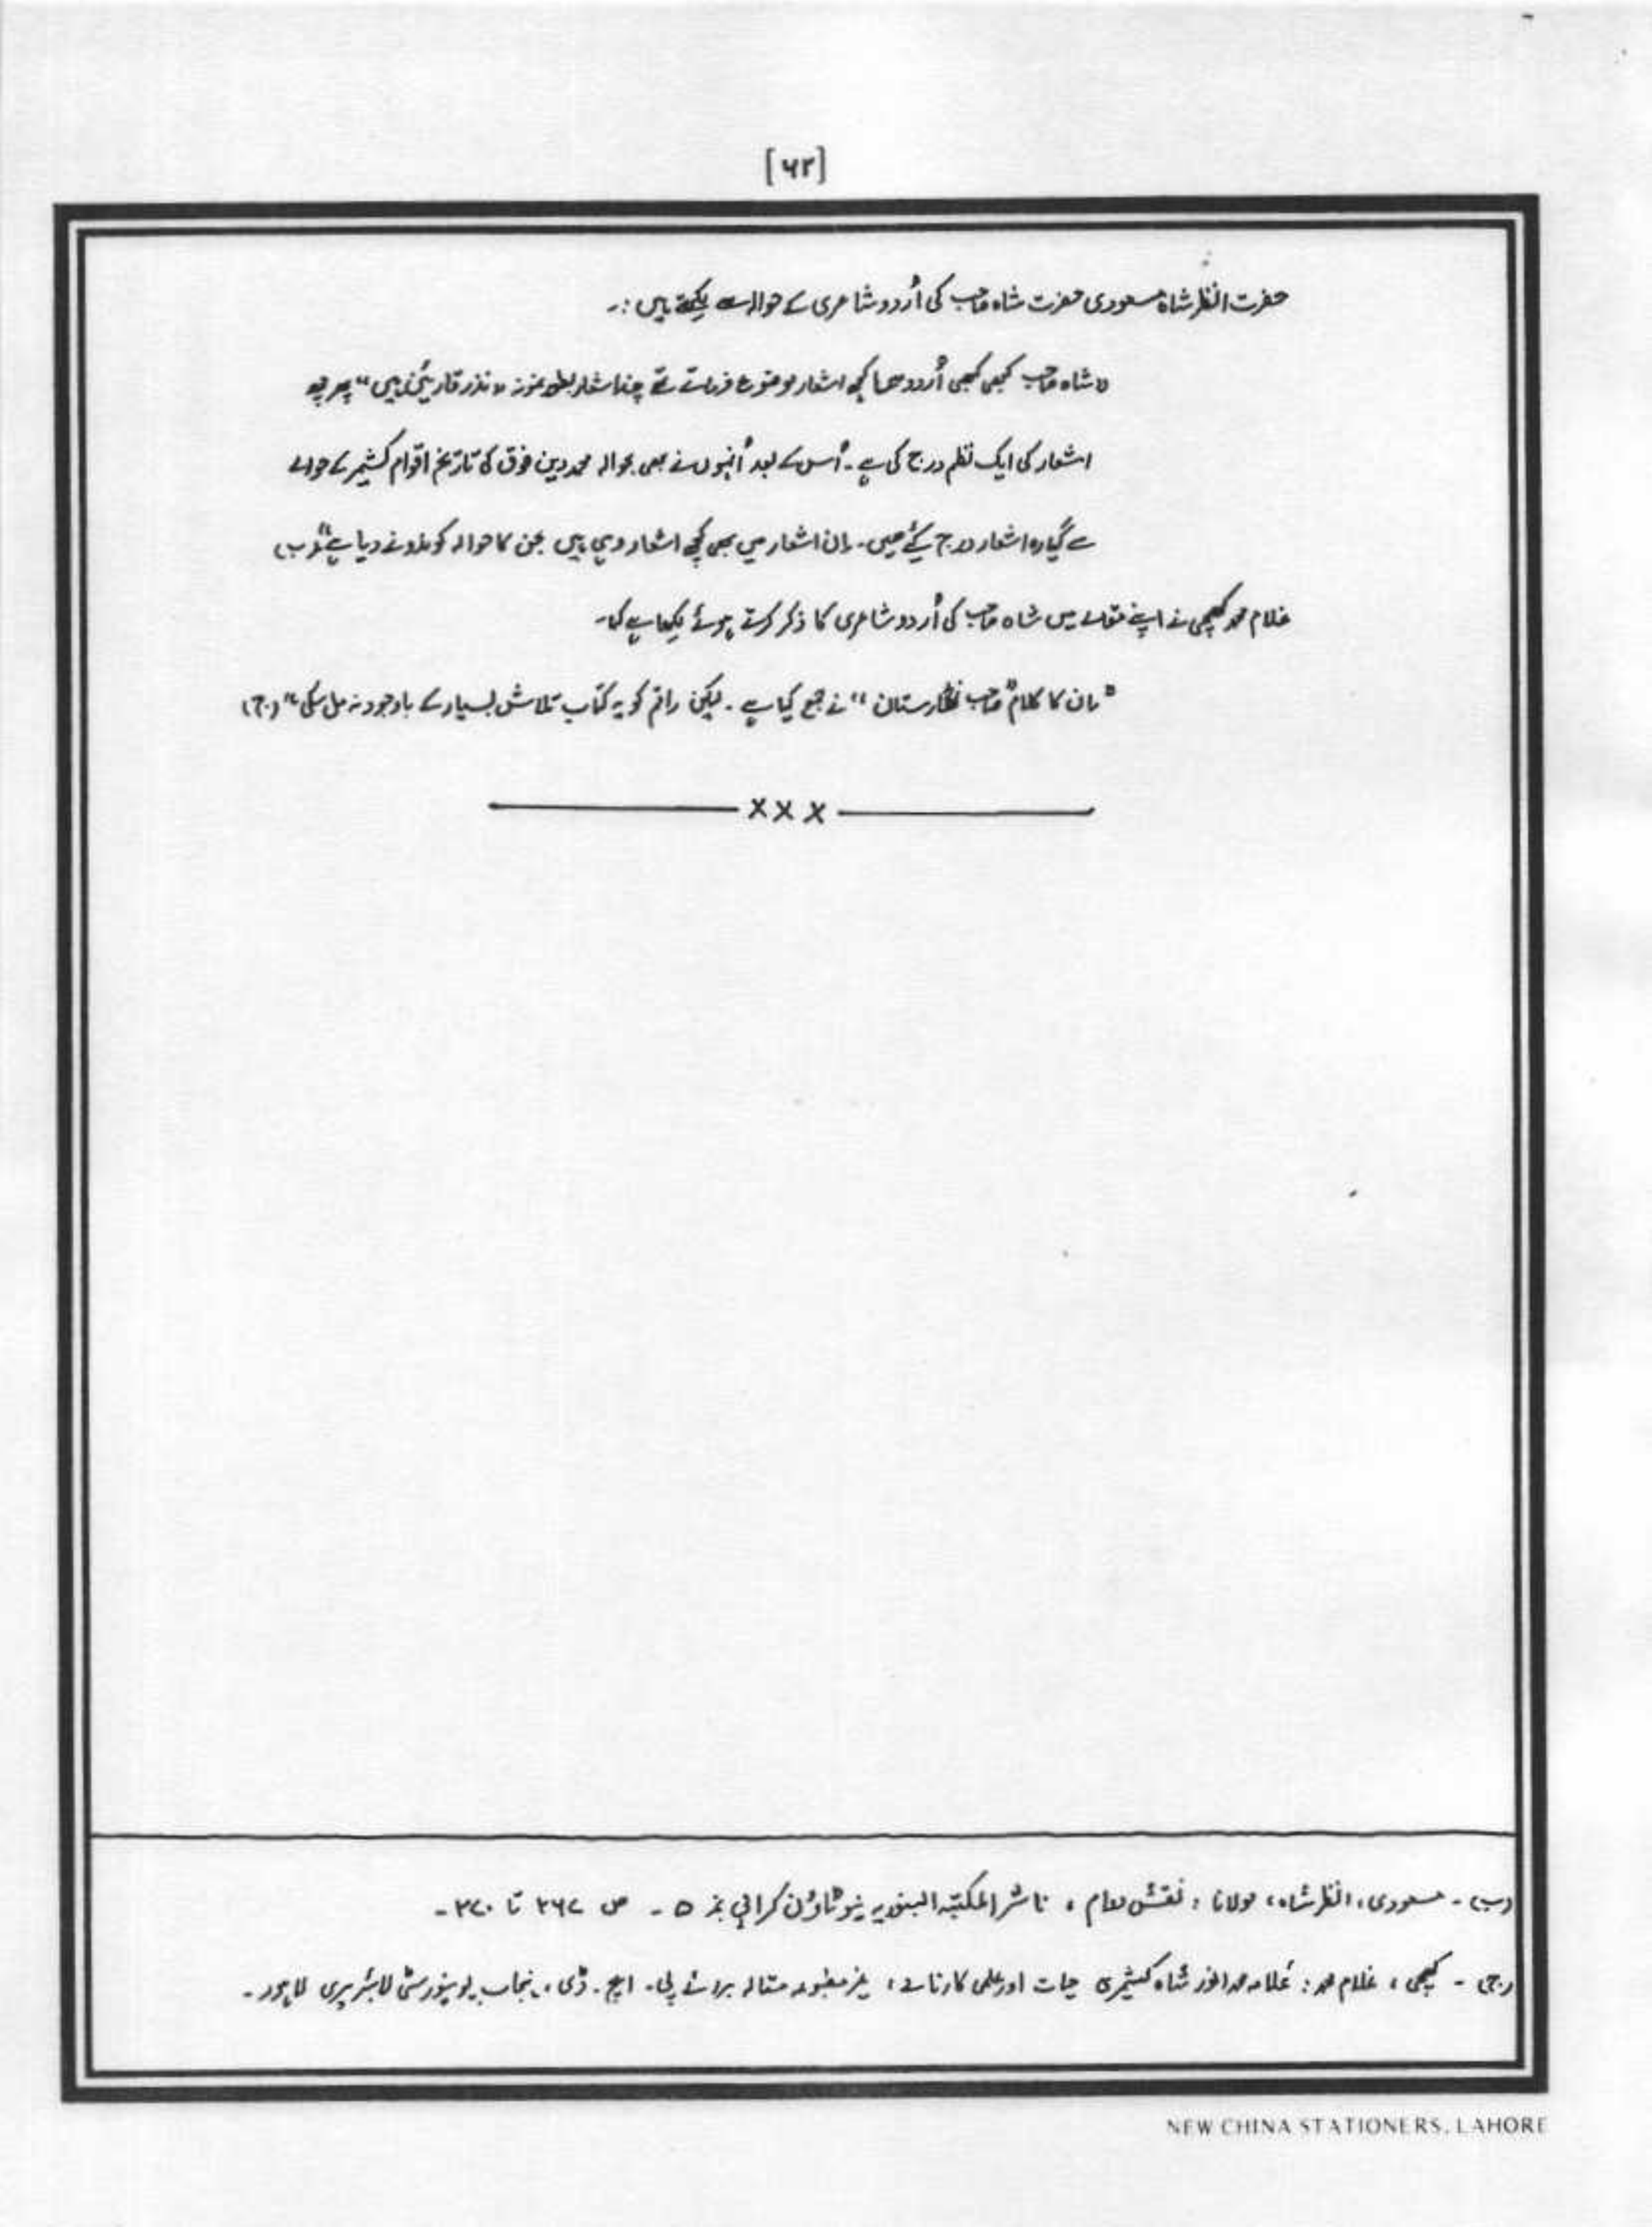 [۶۲]
حضرت انظر شاہ مسعودی حضرت شاہ صاحب کی اُردو شاعری کے حوالہ سے لکھتے ہیں :۔
"شاہ صاحب کبھی کبھی اُردو میں کچھ اشعار موضوع فرماتے تھے چند اشعار بطور نمونہ نذر قارئین ہیں" پھر چھ
اشعار کی ایک نظم درج کی ہے۔ اُس کے بعد اُنہوں نے بھی بحوالہ محمد دین فوق کی تاریخ اقوام کشمیر کے حوالے
سے گیارہ اشعار درج کیئے ھیں۔ اِن اشعار میں بھی کچھ اشعار وہی ہیں جن کا حوالہ کوندو نے دیا ہے" (ب)
غلام محمد کھچی نے اپنے مقالے میں شاہ صاحب کی اُردو شاعری کا ذکر کرتے ہوئے لکھا ہے کہ۔
"اِن کا کلام "صاحب نگارستان" نے جمع کیا ہے ۔ لیکن راقم کو یہ کتاب تلاش بسیار کے باوجود نہ مل سکی" (ج)
——— x x x ———
(ب) - مسعودی، انظر شاہ، مولانا ، نقش دوام ، ناشر المکتبہ البنوریہ نیو ٹاؤن کراچی نمبر ۵ - ص ۳۶۷ تا ۳۷۰ -
(ج) - کھچی ، غلام محمد : علامہ محمد انور شاہ کشمیری حیات اور علمی کارنامے ، غیر مطبوعہ مقالہ برائے پی۔ ایچ۔ ڈی ، پنجاب یونیورسٹی لائبریری لاہور۔
NEW CHINA STATIONERS, LAHORE